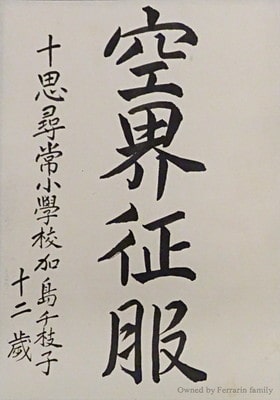 空界征服
十思尋常小學校加島千枝子
十二歳
Owned by Ferrarin family